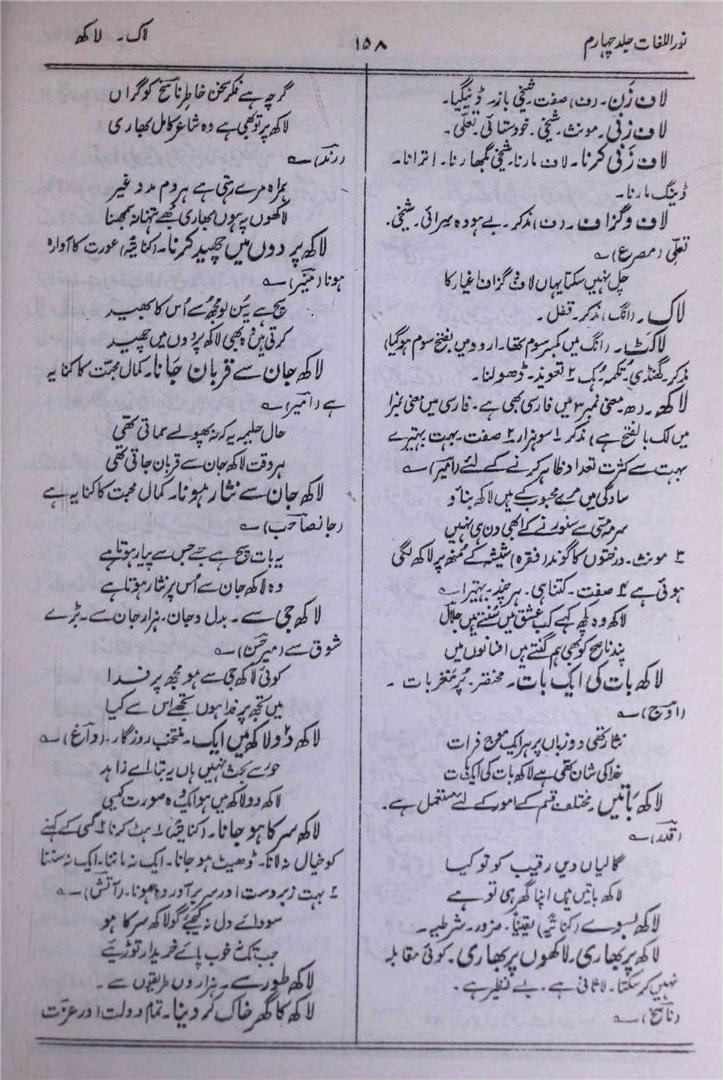 نور اللغات جلد چہارم
۱۵۸
لاک۔ لاکھ
لاف زَن۔ (ف) صفت۔ شیخی باز۔ ڈینگیا۔
لاف زنی۔ مونث۔ شیخی۔ خودستائی۔ تعلی۔
لاف زَنی کرنا۔ لاف مارنا۔ شیخی بگھارنا۔ اترانا۔
ڈینگ مارنا۔
لاف و گزاف۔ (ف) مذکر۔ بے ہودہ سرائی۔ شیخی۔
تعلی (مصرع) ؎
چل نہیں سکتا یہاں لاف و گزاف اغیار کا
لاک۔ (انگ) مذکر۔ قفل۔
لاکٹ۔ (انگ میں بکسر سوم تھا۔ اردو میں بفتح سوم ہوگیا)
مذکر۔ گھنڈی۔ تکمہ۔ ہک ۲ تعویذ۔ ڈھولنا۔
لاکھ۔ (ھ۔ معنی نمبر ۳ میں فارسی بھی ہے۔ فارسی میں معنی نمبر ۱
میں لک بالفتح ہے) مذکر ۱ سو ہزار ۲ صفت۔ بہت۔ بہتیرے
بہت سے کثرت تعداد ظاہر کرنے کے لئے (امیر) ؎
سادگی میں مرے محبوب کے ہیں لاکھ بناؤ
سرمہ مسّی سے سنورنے کے ابھی دن ہی نہیں
۳ مونث۔ درختوں کا گوند (فقرہ) شیشہ کے مُنھ پر لاکھ لگی
ہوئی ہے ۴ صفت۔ کتنا ہی۔ ہر چند۔ بہتیرا ؎
لاکھ وہ کچھ کہے کب عشق میں سنتے ہیں جلال
پندِ ناصح کو بھی ہم گنتے ہیں افسانوں میں
لاکھ بات کی ایک بات۔ مختصر۔ پُر مغز بات۔
(اوج) ؎
نثار تھی دو زباں پر ہر ایک موج فرات
خدا کی شان تھی ہے لاکھ بات کی ایک بات
لاکھ باتیں۔ مختلف قسم کے امور کے لئے مستعمل ہے۔
(قدر) ؎
گالیاں دیں رقیب کو تو کیا
لاکھ باتیں ہیں اپنا گھر ہی تو ہے
لاکھ بسوے (کنایۃً) یقیناً۔ ضرور۔ شرطیہ۔
لاکھ پر بھاری، لاکھوں پر بھاری۔ کوئی مقابلہ
نہیں کرسکتا۔ لاثانی ہے۔ بے نظیر ہے۔
(ناسخ) ؎
گرچہ ہے فکر سخن خاطر ناسخ کو گراں
لاکھ پر تو بھی ہے وہ شاعر کامل بھاری
(رند) ؎
ہمراہ مرے رہتی ہے ہر دم مدد غیر
لاکھوں پر ہوں بھاری مجھے تنہا نہ سمجھنا
لاکھ پردوں میں چھید کرنا۔ (کنایۃً) عورت کا آوارہ
ہونا (میر) ؎
سچ ہے یہ سُن لو مجھ سے اُس کا بھید
کرتی ہے وہ بھی لاکھ پردوں میں چھید
لاکھ جان سے قربان جانا۔ کمال محبت کا کنایہ
ہے (امیر) ؎
حال حلیمہ یہ کہ نہ پھولے سماتی تھی
ہر وقت لاکھ جان سے قربان جاتی تھی
لاکھ جان سے نثار ہونا۔ کمال محبت کا کنایہ ہے
(جانصاحب) ؎
یہ بات سچ ہے جسے جس سے پیار ہوتا ہے
وہ لاکھ جان سے اُس پر نثار ہوتا ہے
لاکھ جی سے۔ بدل و جان۔ ہزار جان سے۔ بڑے
شوق سے (میر حسن) ؎
کوئی لاکھ جی سے ہو مجھ پر فدا
میں تجھ پر فدا ہوں تجھے اس سے کیا
لاکھ دو لاکھ میں ایک۔ منتخب روزگار۔ (داغ) ؎
حور سے بحث نہیں ہاں یہ بتا اے زاہد
لاکھ دو لاکھ میں ہو ایک وہ صورت کیسی
لاکھ سر کا ہو جانا۔ (کنایۃً) ۱ ہٹ کرنا۔ کسی کے کہنے
کو خیال نہ لانا۔ ڈھیٹ ہو جانا۔ ایک نہ ماننا۔ ایک نہ سننا
۲ بہت زبردست اور سربرآوردہ ہونا۔ (آتش) ؎
سودائے دل نہ کیجئے گو لاکھ سر کا ہو
جب تک خوب پائے خریدار توڑئیے
لاکھ طور سے۔ ہزاروں طریقوں سے۔
لاکھ کا گھر خاک کر دینا۔ تمام دولت اور عزت